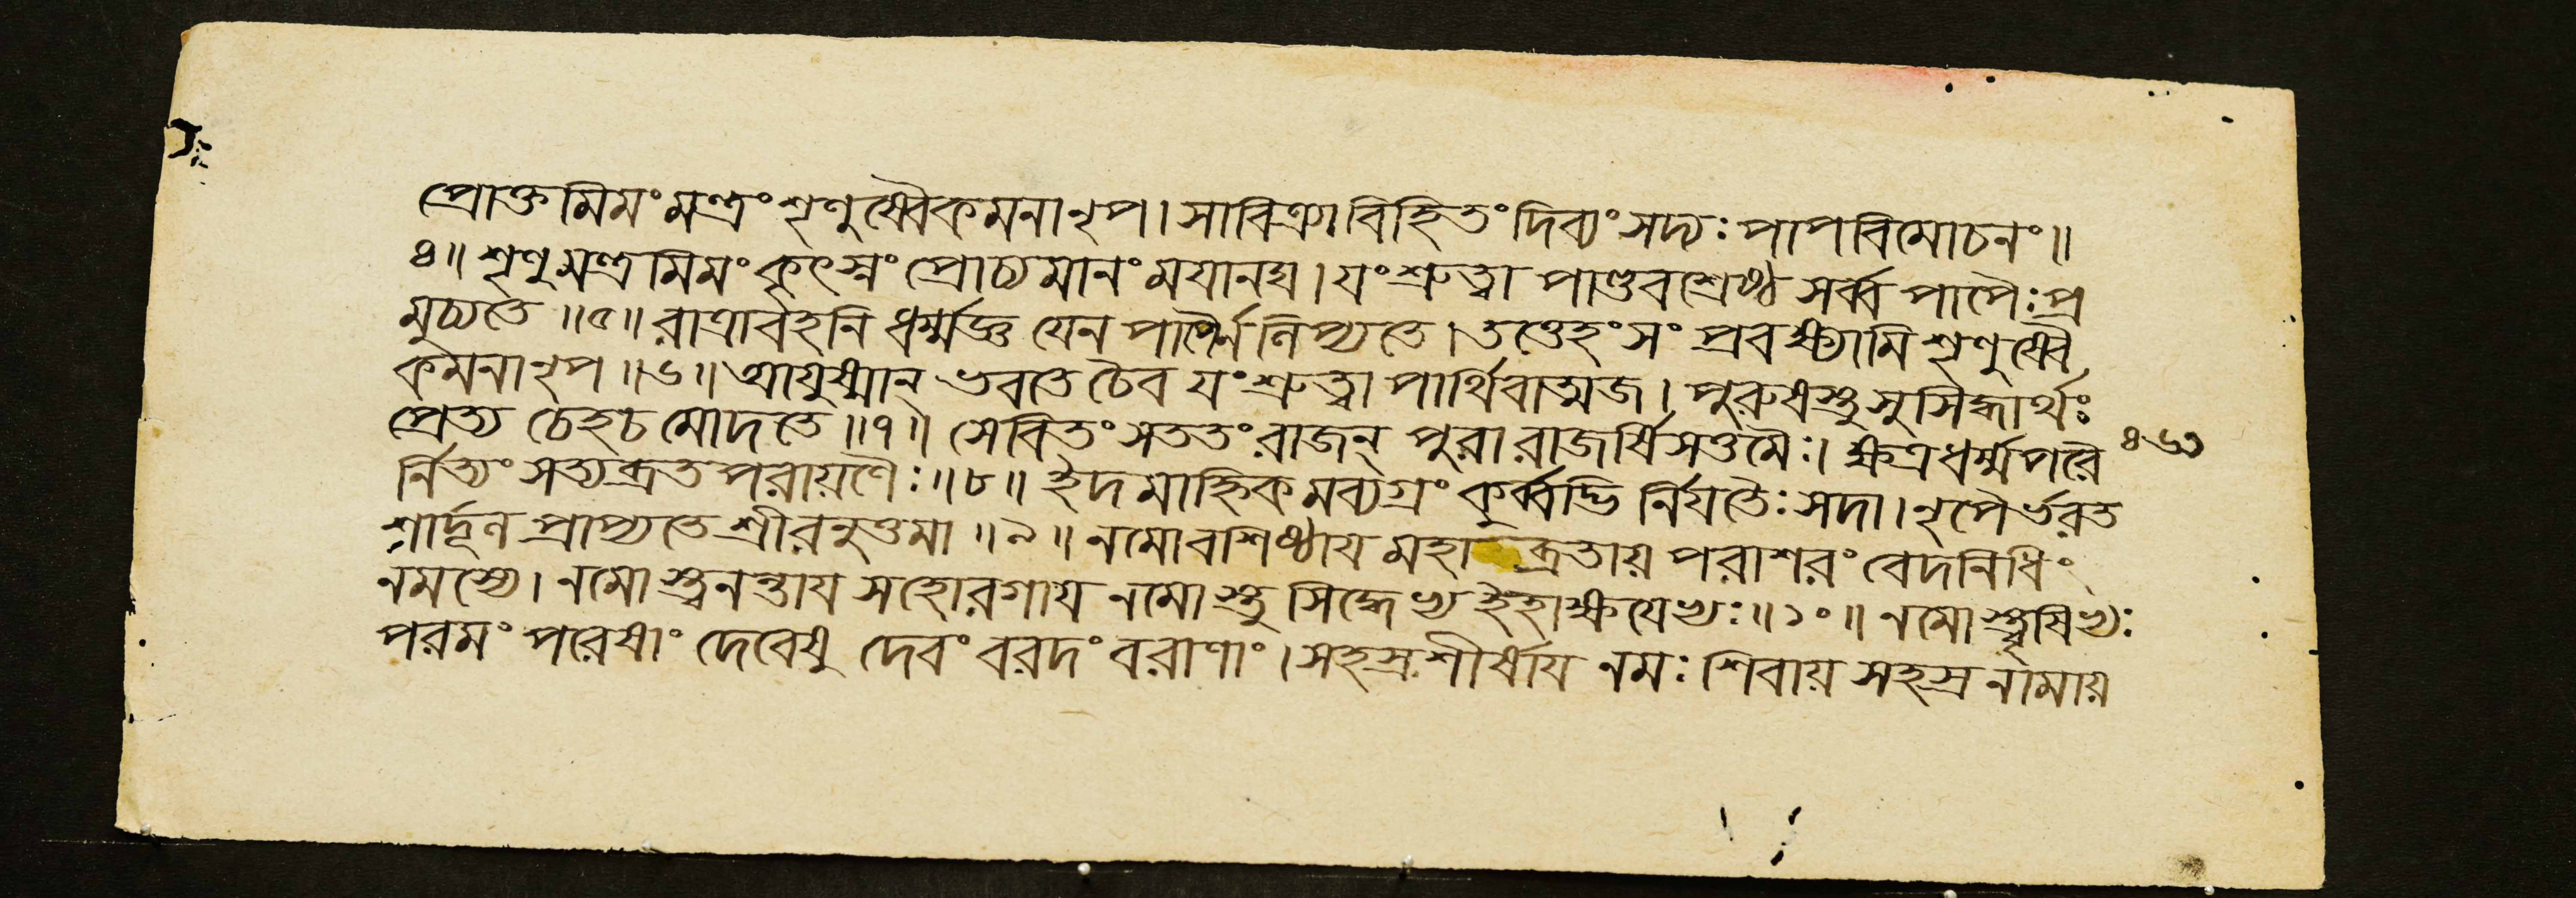 প্রোক্তমিমং মন্ত্রং শৃণুষ্বৈকমনা নৃপ। সাবিত্র্যা বিহিতং দিব্যং সদ্যঃ পাপবিমোচনং॥
৪॥ শৃণু মন্ত্রমিমং কৃৎস্নং প্রোচ্যমানং ময়ানঘ। যং শ্রুত্বা পাণ্ডবশ্রেষ্ঠ সর্ব্ব পাপৈঃ প্র
মুচ্যতে॥৫॥ রাত্রাবহনি ধর্ম্মজ্ঞ যেন পাপৈর্ন লিপ্যতে। তত্তেহং সং প্রবক্ষ্যামি শৃণুষ্বৈ
কমনা নৃপ॥৬॥ আয়ুষ্মান্ ভবতে চৈব যং শ্রুত্বা পার্থিবাত্মজ। পুরুষস্তু সুসিদ্ধার্থঃ
প্রেত্য চেহ চ মোদতে॥৭॥ সেবিতং সততং রাজন্ পুরা রাজর্ষিসত্তমৈঃ। ক্ষত্রধর্ম্মপরৈ
র্নিত্যং সত্যব্রতপরায়ণৈঃ॥৮॥ ইদমাহ্নিকমব্যগ্রং কুর্ব্বদ্ভি র্নিয়তৈঃ সদা। নৃপৈর্ভরত
শার্দূল প্রাপ্যতে শ্রীরনুত্তমা॥৯॥ নমো বশিষ্ঠায় মহাব্রতায় পরাশরং বেদনিধিং
নমস্যে। নমোস্ত্বনন্তায় সহোরগায় নমোস্তু সিদ্ধেভ্য ইহাক্ষয়েভ্যঃ॥১০॥ নমোস্ত্বৃষিভ্যঃ
পরমং পরেষাং দেবেষু দেবং বরদং বরাণাং। সহস্রশীর্ষায় নমঃ শিবায় সহস্র নামায়